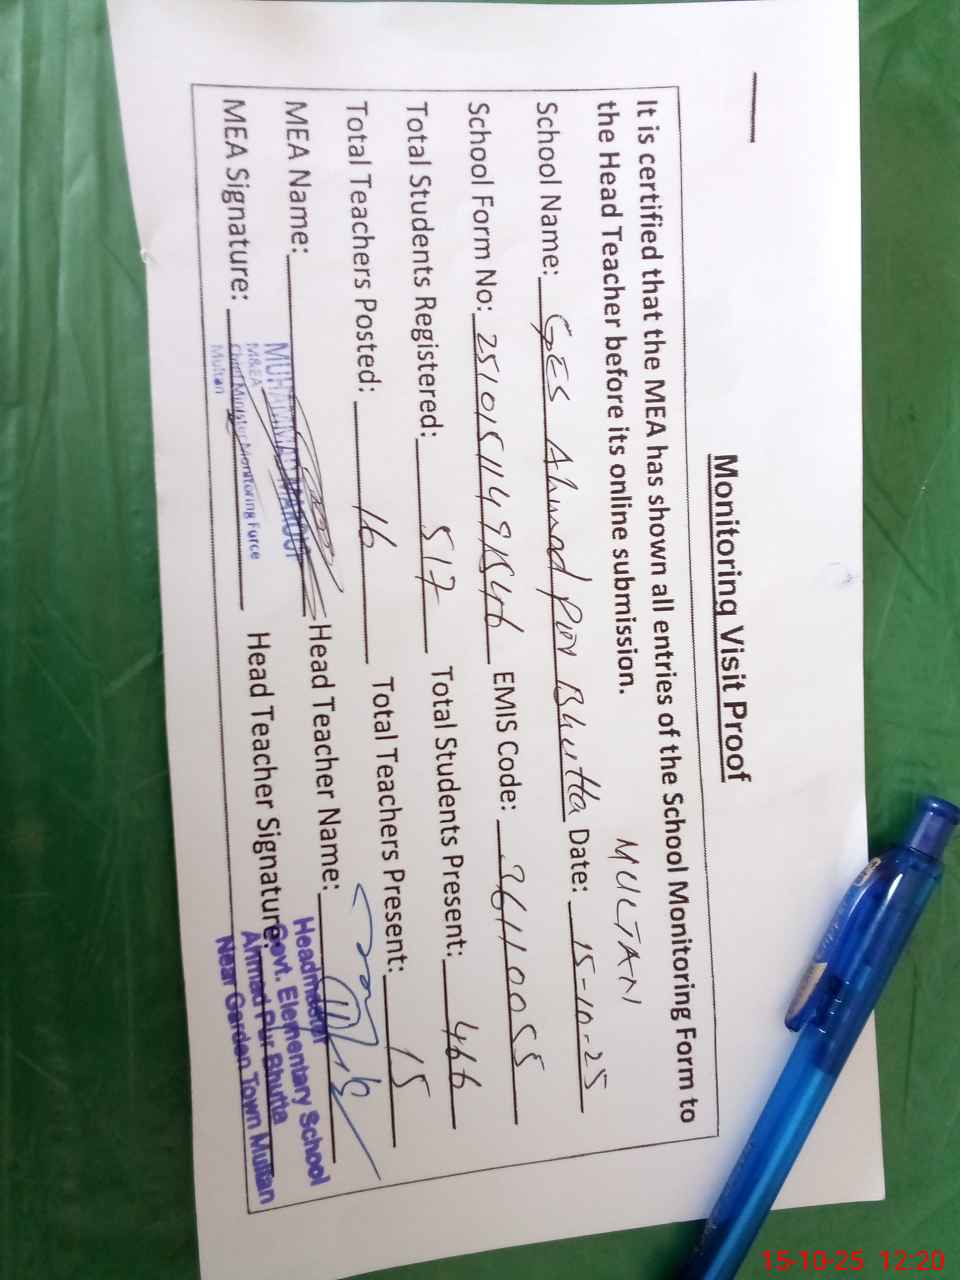 Monitoring Visit Proof
It is certified that the MEA has shown all entries of the School Monitoring Form to
the Head Teacher before its online submission.
MULTAN
School Name: GES Ahmad Pur Bhutta Date: 15-10-25
School Form No: EMIS Code: 36110055
Total Students Registered: 517 Total Students Present: 466
Total Teachers Posted: 16 Total Teachers Present: 15
MEA Name: MUHAMMAD Head Teacher Name:
MEA Signature: Head Teacher Signature:
M&EA
Chief Minister Monitoring Force
Multan
Headmaster
Govt. Elementary School
Ahmad Pur Bhutta
Near Garden Town Multan
15-10-25 12:20